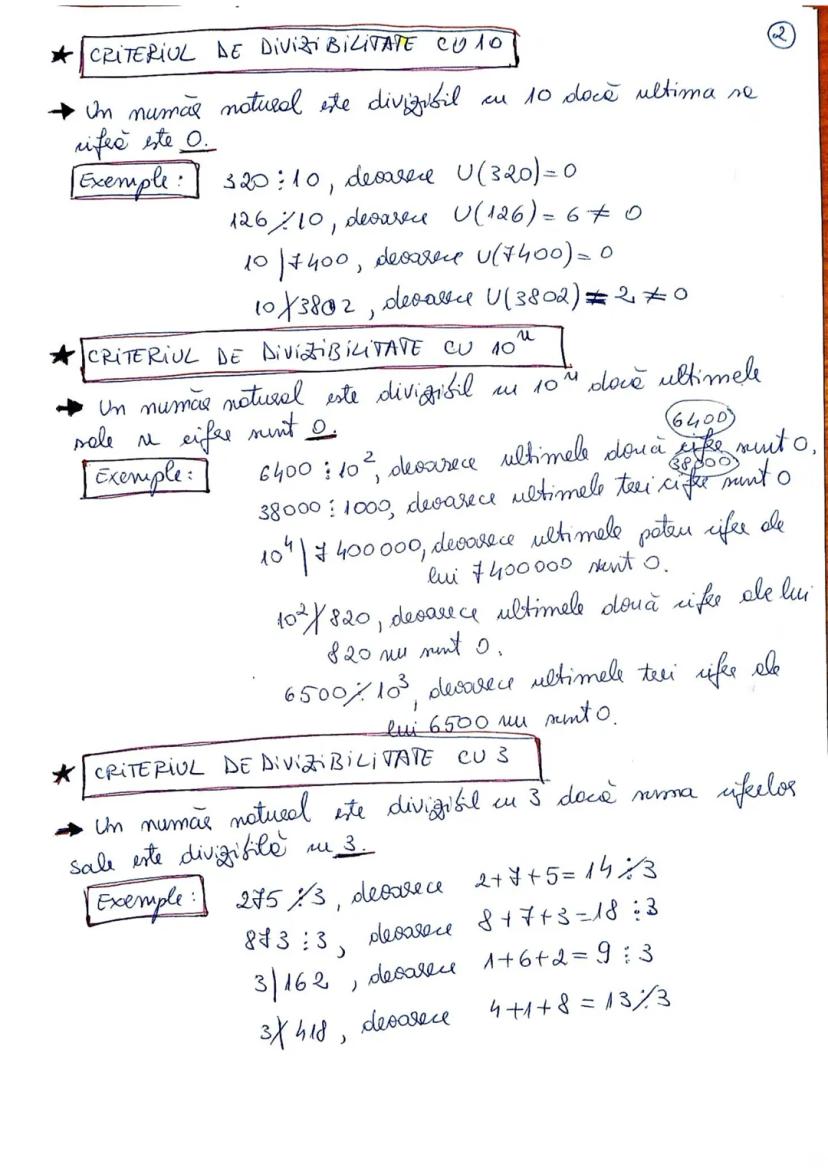 2
★ CRITERIUL DE DIVIZIBILITATE CU 10
→ Un număr natural este divizibil cu 10 dacă ultima sa
cifră este 0.
Exemple: 320 ⋮ 10, deoarece U(320)=0
126 ⋮̸ 10, deoarece U(126) = 6 ≠ 0
10 | 7400, deoarece U(7400)= 0
10 ∤ 3802, deoarece U(3802) = 2 ≠ 0
★ CRITERIUL DE DIVIZIBILITATE CU 10ⁿ
→ Un număr natural este divizibil cu 10ⁿ dacă ultimele
sale n cifre sunt 0.
6400
Exemple: 6400 ⋮ 10², deoarece ultimele două cifre sunt 0.
38000
38000 ⋮ 1000, deoarece ultimele trei cifre sunt 0
10⁴ | 7400000, deoarece ultimele patru cifre ale
lui 7400000 sunt 0.
10² ∤ 820, deoarece ultimele două cifre ale lui
820 nu sunt 0.
6500 ⋮̸ 10³, deoarece ultimele trei cifre ale
lui 6500 nu sunt 0.
★ CRITERIUL DE DIVIZIBILITATE CU 3
→ Un număr natural este divizibil cu 3 dacă suma cifrelor
sale este divizibilă cu 3.
Exemple: 275 ⋮̸ 3, deoarece 2+7+5= 14 ⋮̸ 3
873 ⋮ 3, deoarece 8+7+3=18 ⋮ 3
3 | 162, deoarece 1+6+2= 9 ⋮ 3
3 ∤ 418, deoarece 4+1+8 = 13 ⋮̸ 3